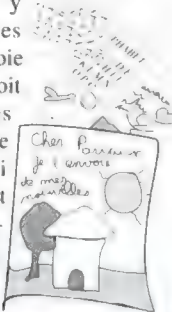 y
es
oie
oit
s
e
i
t
Cher Parrain
je t'envoie
de mes
nouvelles